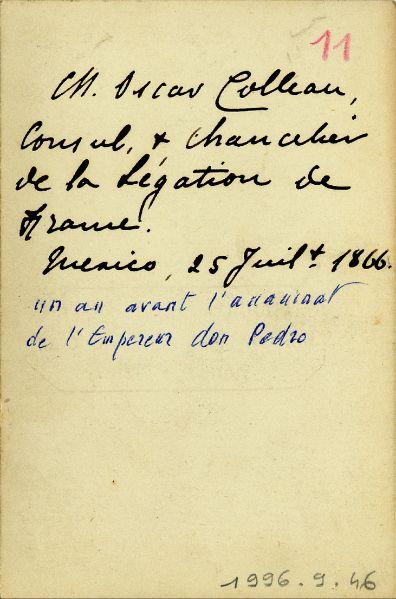 11
M. Oscar Colleau,
Consul, & chancelier
de la Légation de
France.
Mexico, 25 Juilt 1866.
un an avant l'assassinat
de l'Empereur don Pedro
1996.9.46